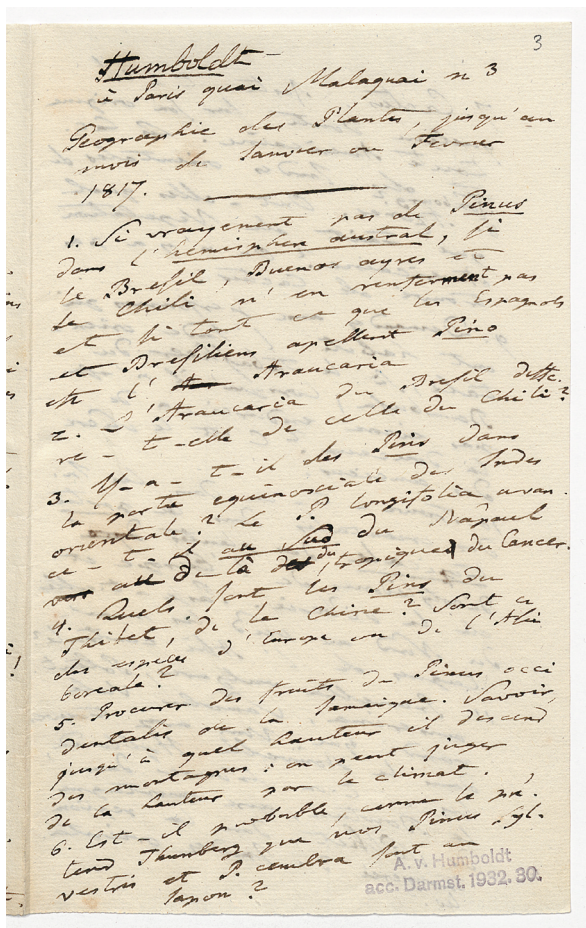 3
Humboldt
à Paris quai Malaquai n 3
Geographie des Plantes, jusqu'au
mois de Janvier ou Fevrier
1817.
1. Si vrayement pas de Pinus
dans l'hemisphere austral, si
le Bresil, Buenos ayres et
le Chili n'en renferment pas
et si tout ce que les Espagnols
et Bresiliens apellent Pino
est l' Araucaria
2. - L'Araucaria du Bresil diffe-
re-t-elle de celle du Chili?
3. Y-a-t-il des Pins dans
la partie equinoxiale des Indes
orientale? Le P. longifolia avan-
ce-t-il au Sud du Nâpaul
au de là du tropique du Cancer.
4. Quels sont les Pins du
Thibet, de la Chine? Sont ce
des especes d'Europe ou de l'Asie
boreale?
5. Procurer des fruits du Pinus occi
dentalis de la Jamaique. Savoir,
jusqu'à quel hauteur il descend
des montagnes: on peut juger
de la hauteur par le climat.
6. Est-il probable, comme le pré-
tend Thunberg que nos Pinus syl-
vestris et P. cembra sont au
Japon?
A. v. Humboldt
acc. Darmst. 1932. 30.